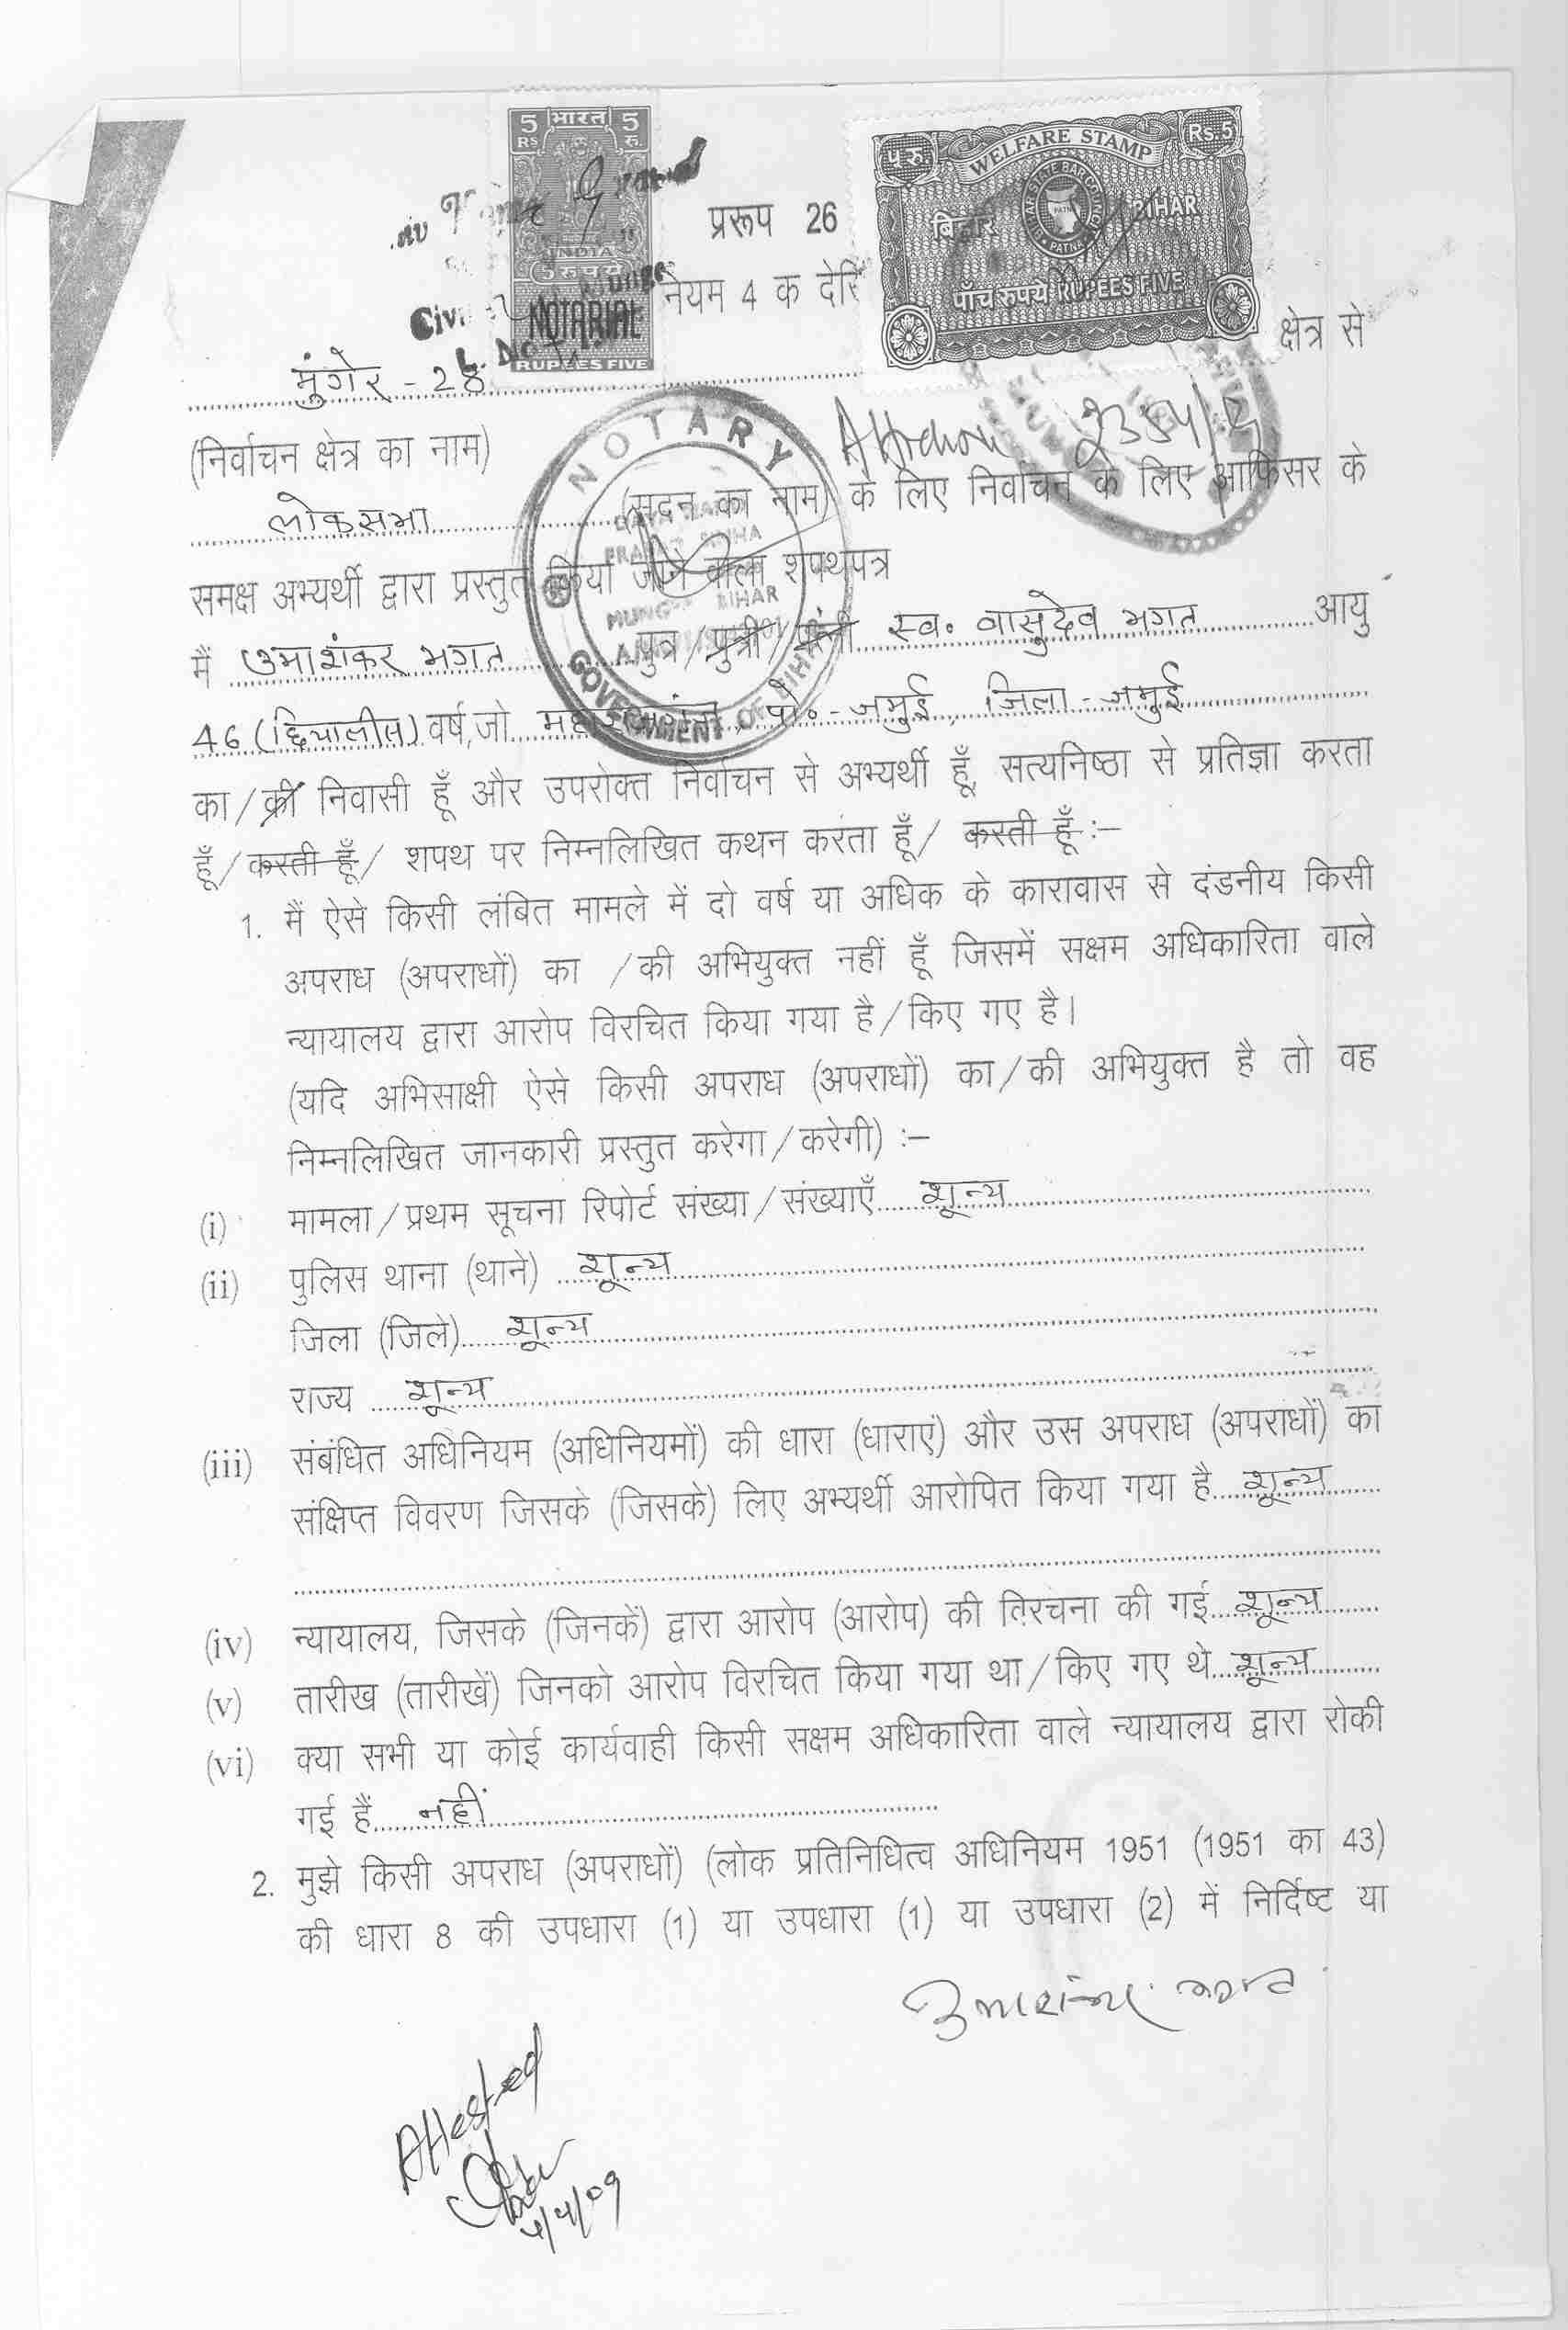 5 भारत 5
RS रु.
INDIA
5 रुपये
NOTARIAL
RUPEES FIVE
प. रु. WELFARE STAMP Rs. 5
बिहार BIHAR
PATNA
पाँच रुपये RUPEES FIVE
प्ररूप 26
नेयम 4 क देरि
क्षेत्र से
मुंगेर - 28
(निर्वाचन क्षेत्र का नाम)
NOTARY
GOVERNMENT OF BIHAR
लोकसभा (सदन का नाम) के लिए निर्वाचन के लिए आफिसर के
समक्ष अभ्यर्थी द्वारा प्रस्तुत किया जाने वाला शपथपत्र
मैं उमाशंकर भगत पुत्र/पुत्री/पत्नी स्व० वासुदेव भगत आयु
46 (छियालीस) वर्ष, जो पो०-जमुई, जिला-जमुई
का/की निवासी हूँ और उपरोक्त निर्वाचन से अभ्यर्थी हूँ, सत्यनिष्ठा से प्रतिज्ञा करता
हूँ/करती हूँ/ शपथ पर निम्नलिखित कथन करता हूँ/ करती हूँ :–
1. मैं ऐसे किसी लंबित मामले में दो वर्ष या अधिक के कारावास से दंडनीय किसी
अपराध (अपराधों) का /की अभियुक्त नहीं हूँ जिसमें सक्षम अधिकारिता वाले
न्यायालय द्वारा आरोप विरचित किया गया है/किए गए है।
(यदि अभिसाक्षी ऐसे किसी अपराध (अपराधों) का/की अभियुक्त है तो वह
निम्नलिखित जानकारी प्रस्तुत करेगा/करेगी) :–
(i) मामला/प्रथम सूचना रिपोर्ट संख्या/संख्याएँ शून्य
(ii) पुलिस थाना (थाने) शून्य
जिला (जिले) शून्य
राज्य शून्य
(iii) संबंधित अधिनियम (अधिनियमों) की धारा (धाराएं) और उस अपराध (अपराधों) का
संक्षिप्त विवरण जिसके (जिसके) लिए अभ्यर्थी आरोपित किया गया है शून्य
(iv) न्यायालय, जिसके (जिनकें) द्वारा आरोप (आरोप) की विरचना की गई शून्य
(v) तारीख (तारीखें) जिनको आरोप विरचित किया गया था/किए गए थे शून्य
(vi) क्या सभी या कोई कार्यवाही किसी सक्षम अधिकारिता वाले न्यायालय द्वारा रोकी
गई हैं नहीं
2. मुझे किसी अपराध (अपराधों) (लोक प्रतिनिधित्व अधिनियम 1951 (1951 का 43)
की धारा 8 की उपधारा (1) या उपधारा (1) या उपधारा (2) में निर्दिष्ट या
उमाशंकर भगत
Attested